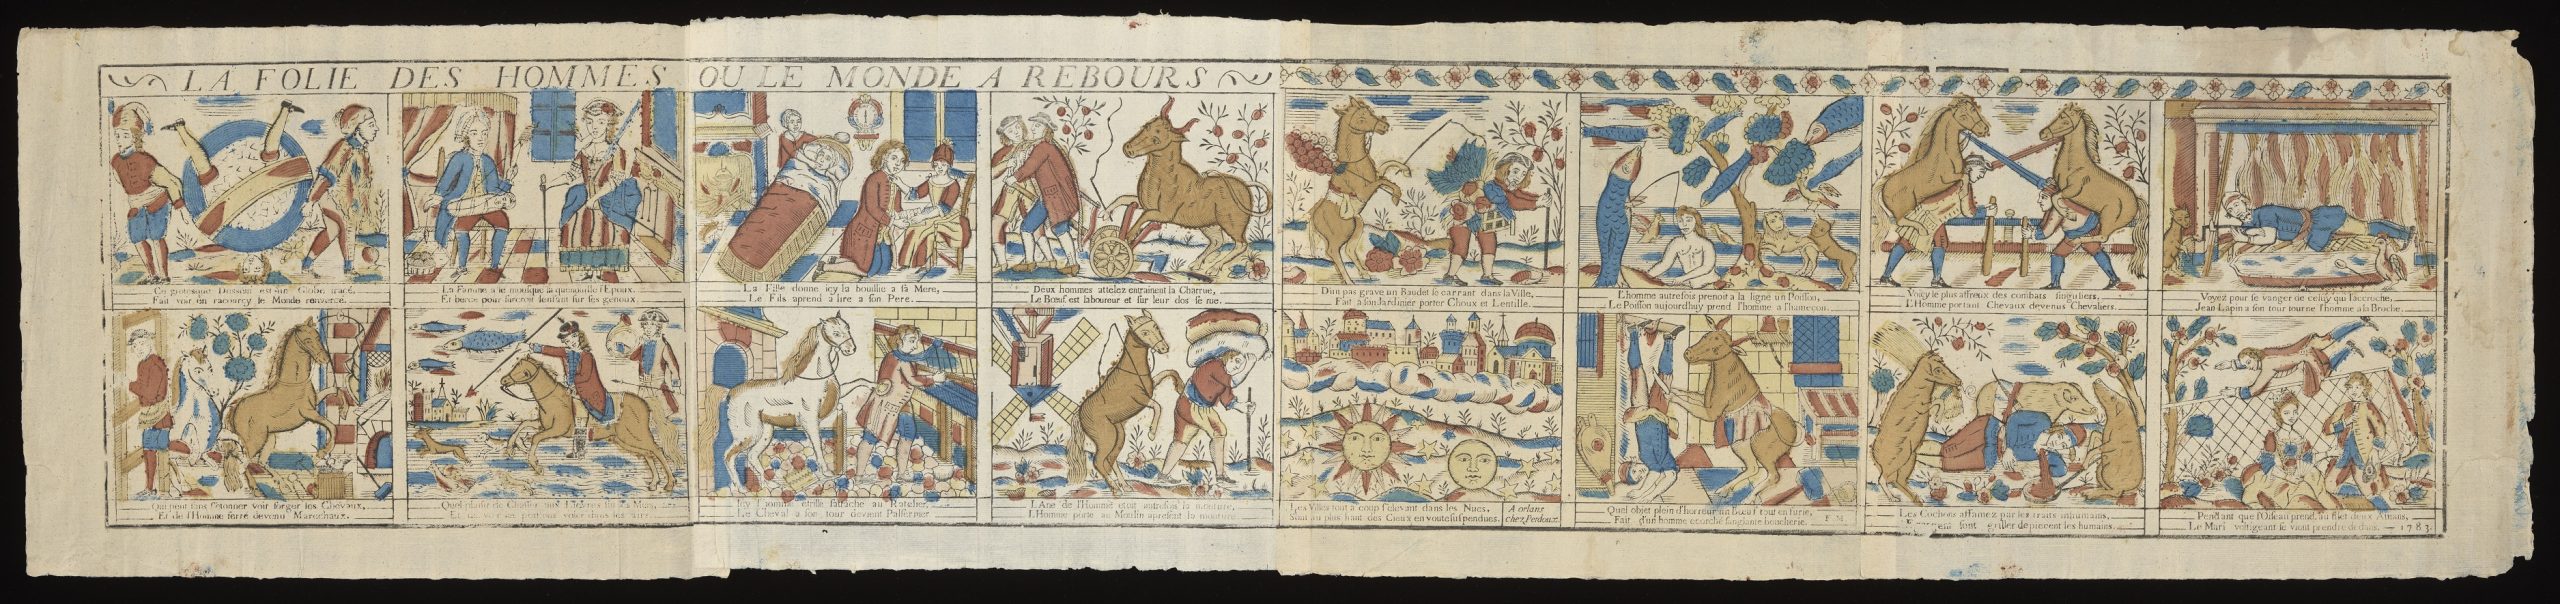 LA FOLIE DES HOMMES OU LE MONDE A REBOURS
Ce grotesque Dessein est un Globe tracé,
Fait voir en racourcy le Monde renversé.
La Femme a le mousquet la quenouille l'Epoux,
Et berce pour surcroit l'enfant sur ses genoux.
La Fille donne icy la bouillie a sa Mere,
Le Fils aprend a lire a son Pere.
Deux hommes attelez entrainent la Charrue,
Le Bœuf est laboureur et sur leur dos se rue.
D'un pas grave un Baudet se carrant dans la Ville,
Fait a son Jardinier porter Choux et Lentille.
L'homme autrefois prenoit a la ligne un Poisson,
Le Poisson aujourd'huy prend l'homme a l'hameçon.
Voicy le plus affreux des combats singuliers,
L'Homme portant Chevaux devenus Chevaliers.
Voyez pour se vanger de celuy qui l'accroche,
Jean Lapin a son tour tourne l'homme a la Broche.
Qui peut sans s'etonner voir forger les Chevaux,
Et de l'Homme ferré devenu Marechaux.
Quel plaisir de Chasser aux Lievres sur les Mers,
Et de voir les poissons voler dans les airs.
Icy l'homme etrille s'atache au Ratelier,
Le Cheval a son tour devient Palfernier.
L'Ane de l'Homme etoit autrefois la monture,
L'Homme porte au Moulin apresent la mouture.
Les Villes tout a coup s'elevant dans les Nues,
Sont au plus haut des Cieux en voute suspendues.
A orlans
chez Perdoux.
Quel objet plein d'horreur un Bœuf tout en furie,
Fait d'un homme ecorché sanglante boucherie. F. M.
Les Cochons affamez par les traits inhumains,
font griller depiecent les humains.
Pendant que l'Oiseau prend au filet deux Amans,
Le Mari voltigeant se vient prendre dedans. — 1783.